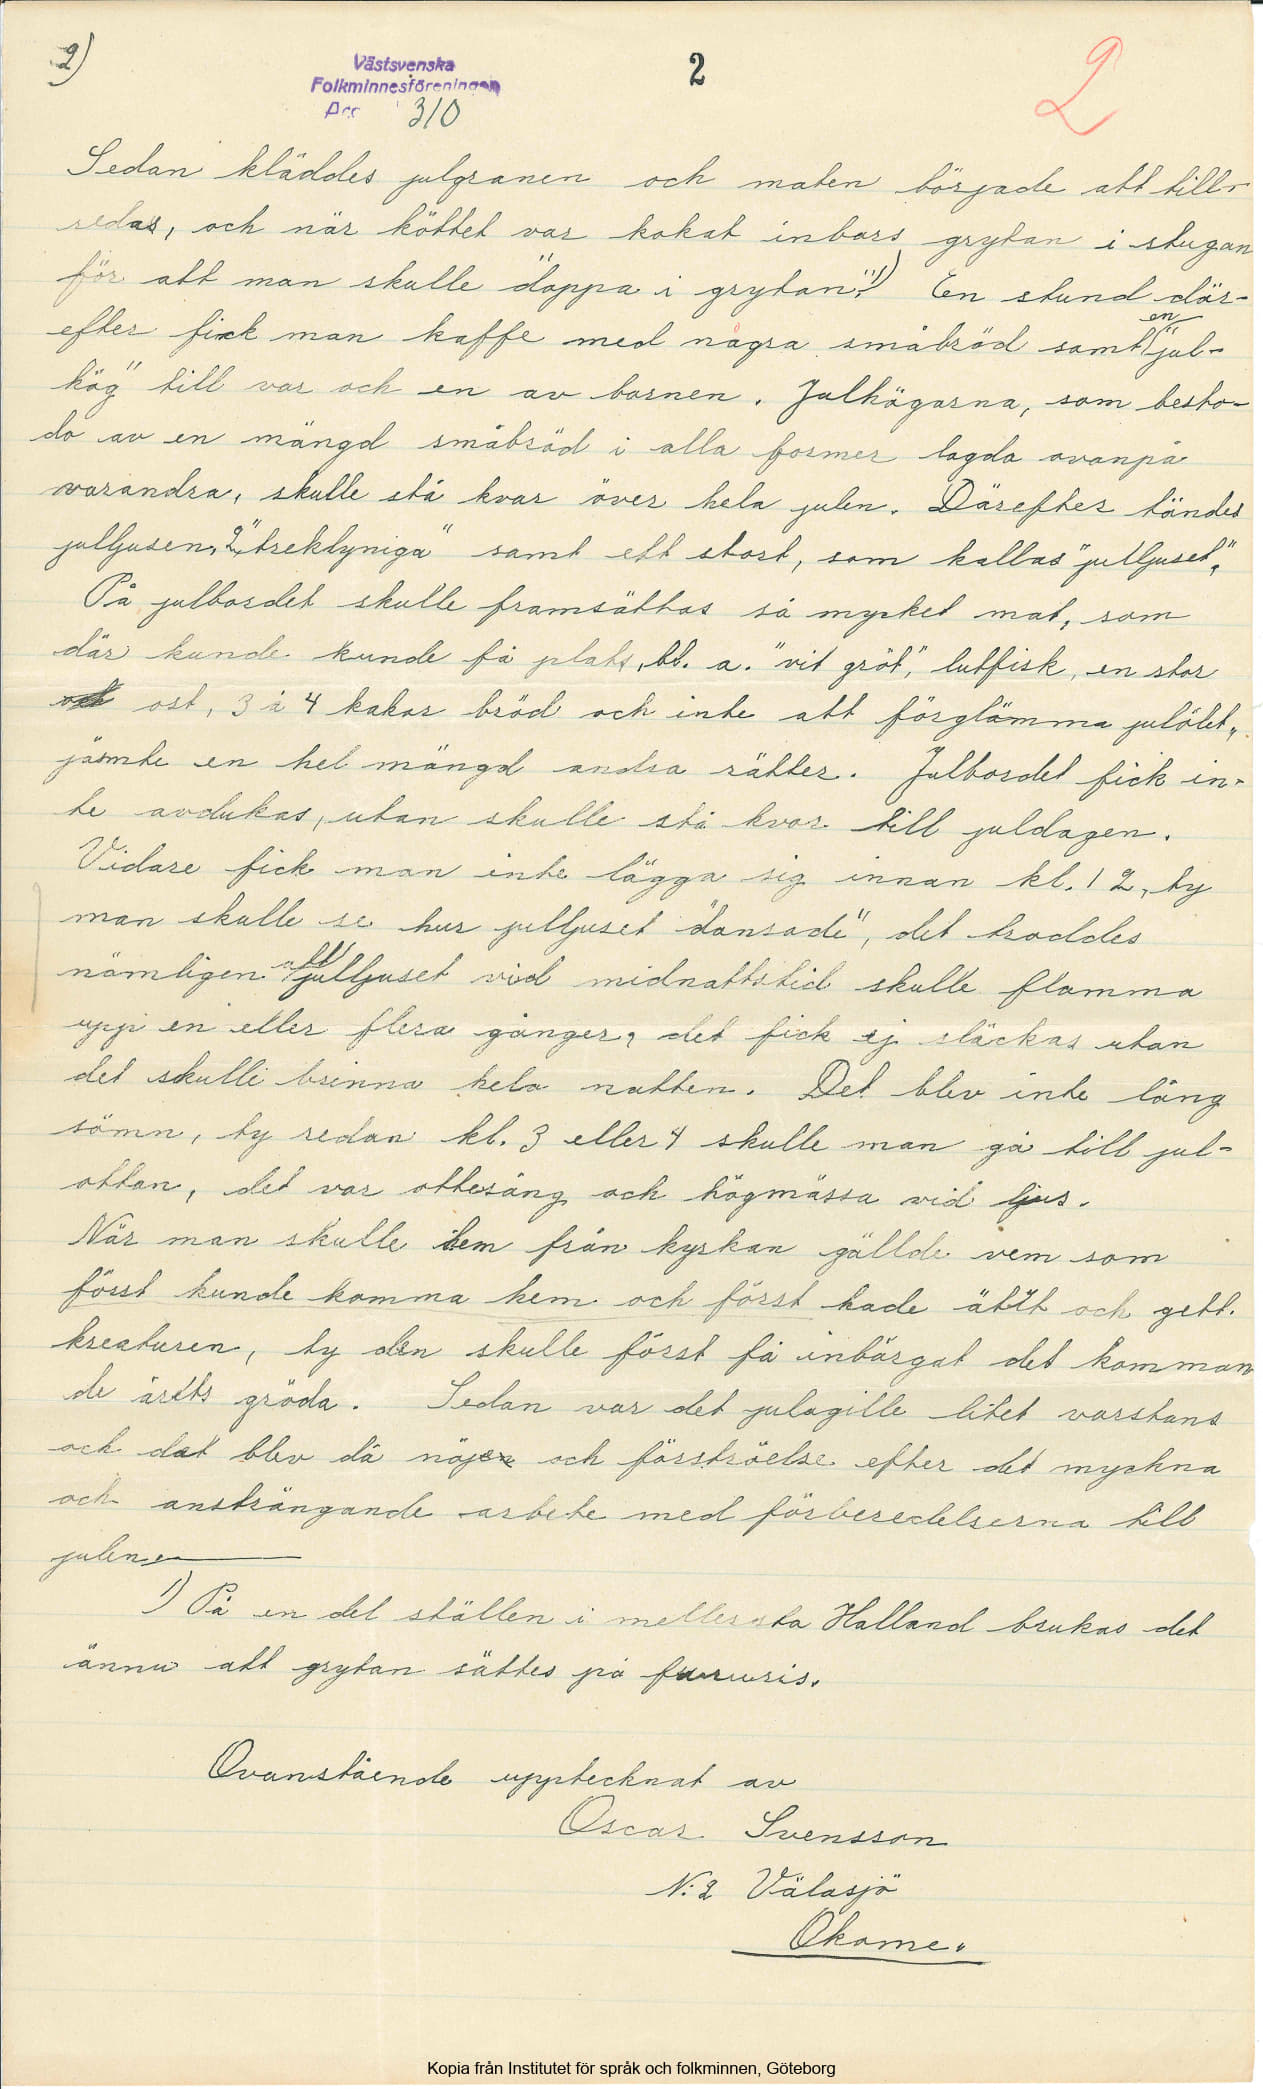 2)
Västsvenska
Folkminnesföreningen
Acc 310
2
2
Sedan kläddes julgranen och maten började att till-
redas, och när köttet var kokat inbars grytan i stugan
för att man skulle "doppa i grytan".1) En stund där-
efter fick man kaffe med några småbröd samt en "jul-
hög" till var och en av barnen. Julhögarna, som besto-
do av en mängd småbröd i alla former lagda ovanpå
varandra, skulle stå kvar över hela julen. Därefter tändes
julljusen, 2 "treklyniga" samt ett stort, som kallas "julljuset".
På julbordet skulle framsättas så mycket mat, som
där kunde kunde få plats, bl. a. "vit gröt", lutfisk, en stor
ost, 3 à 4 kakor bröd och inte att förglömma julölet,
jämte en hel mängd andra rätter. Julbordet fick in-
te avdukas, utan skulle stå kvar till juldagen.
Vidare fick man inte lägga sig innan kl. 12, ty
man skulle se hur julljuset "dansade", det troddes
nämligen att julljuset vid midnattstid skulle flamma
upp en eller flera gånger, det fick ej släckas utan
det skulle brinna hela natten. Det blev inte lång
sömn, ty redan kl. 3 eller 4 skulle man gå till jul-
ottan, det var ottesång och högmässa vid ljus.
När man skulle hem från kyrkan gällde vem som
först kunde komma hem och först hade ätit och gett
kreaturen, ty den skulle först få inbärgat det komman
de årets gröda. Sedan var det julagille litet varstans
och det blev då nöjen och förströelse efter det myckna
och ansträngande arbete med förberedelserna till
julen.
1) På en del ställen i mellersta Halland brukas det
ännu att grytan sättes på fururis.
Ovanstående upptecknat av
Oscar Svensson
N:2 Välasjö
Okome.
Kopia från Institutet för språk och folkminnen, Göteborg